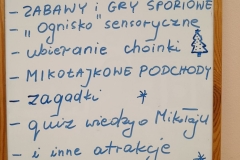 - ZABAWY i GRY SPORTOWE
- „Ognisko" sensoryczne
- ubieranie choinki
- MIKOŁAJKOWE PODCHODY
- zagadki *
- quiz wiedzy o Mikołaju
- i inne atrakcje *